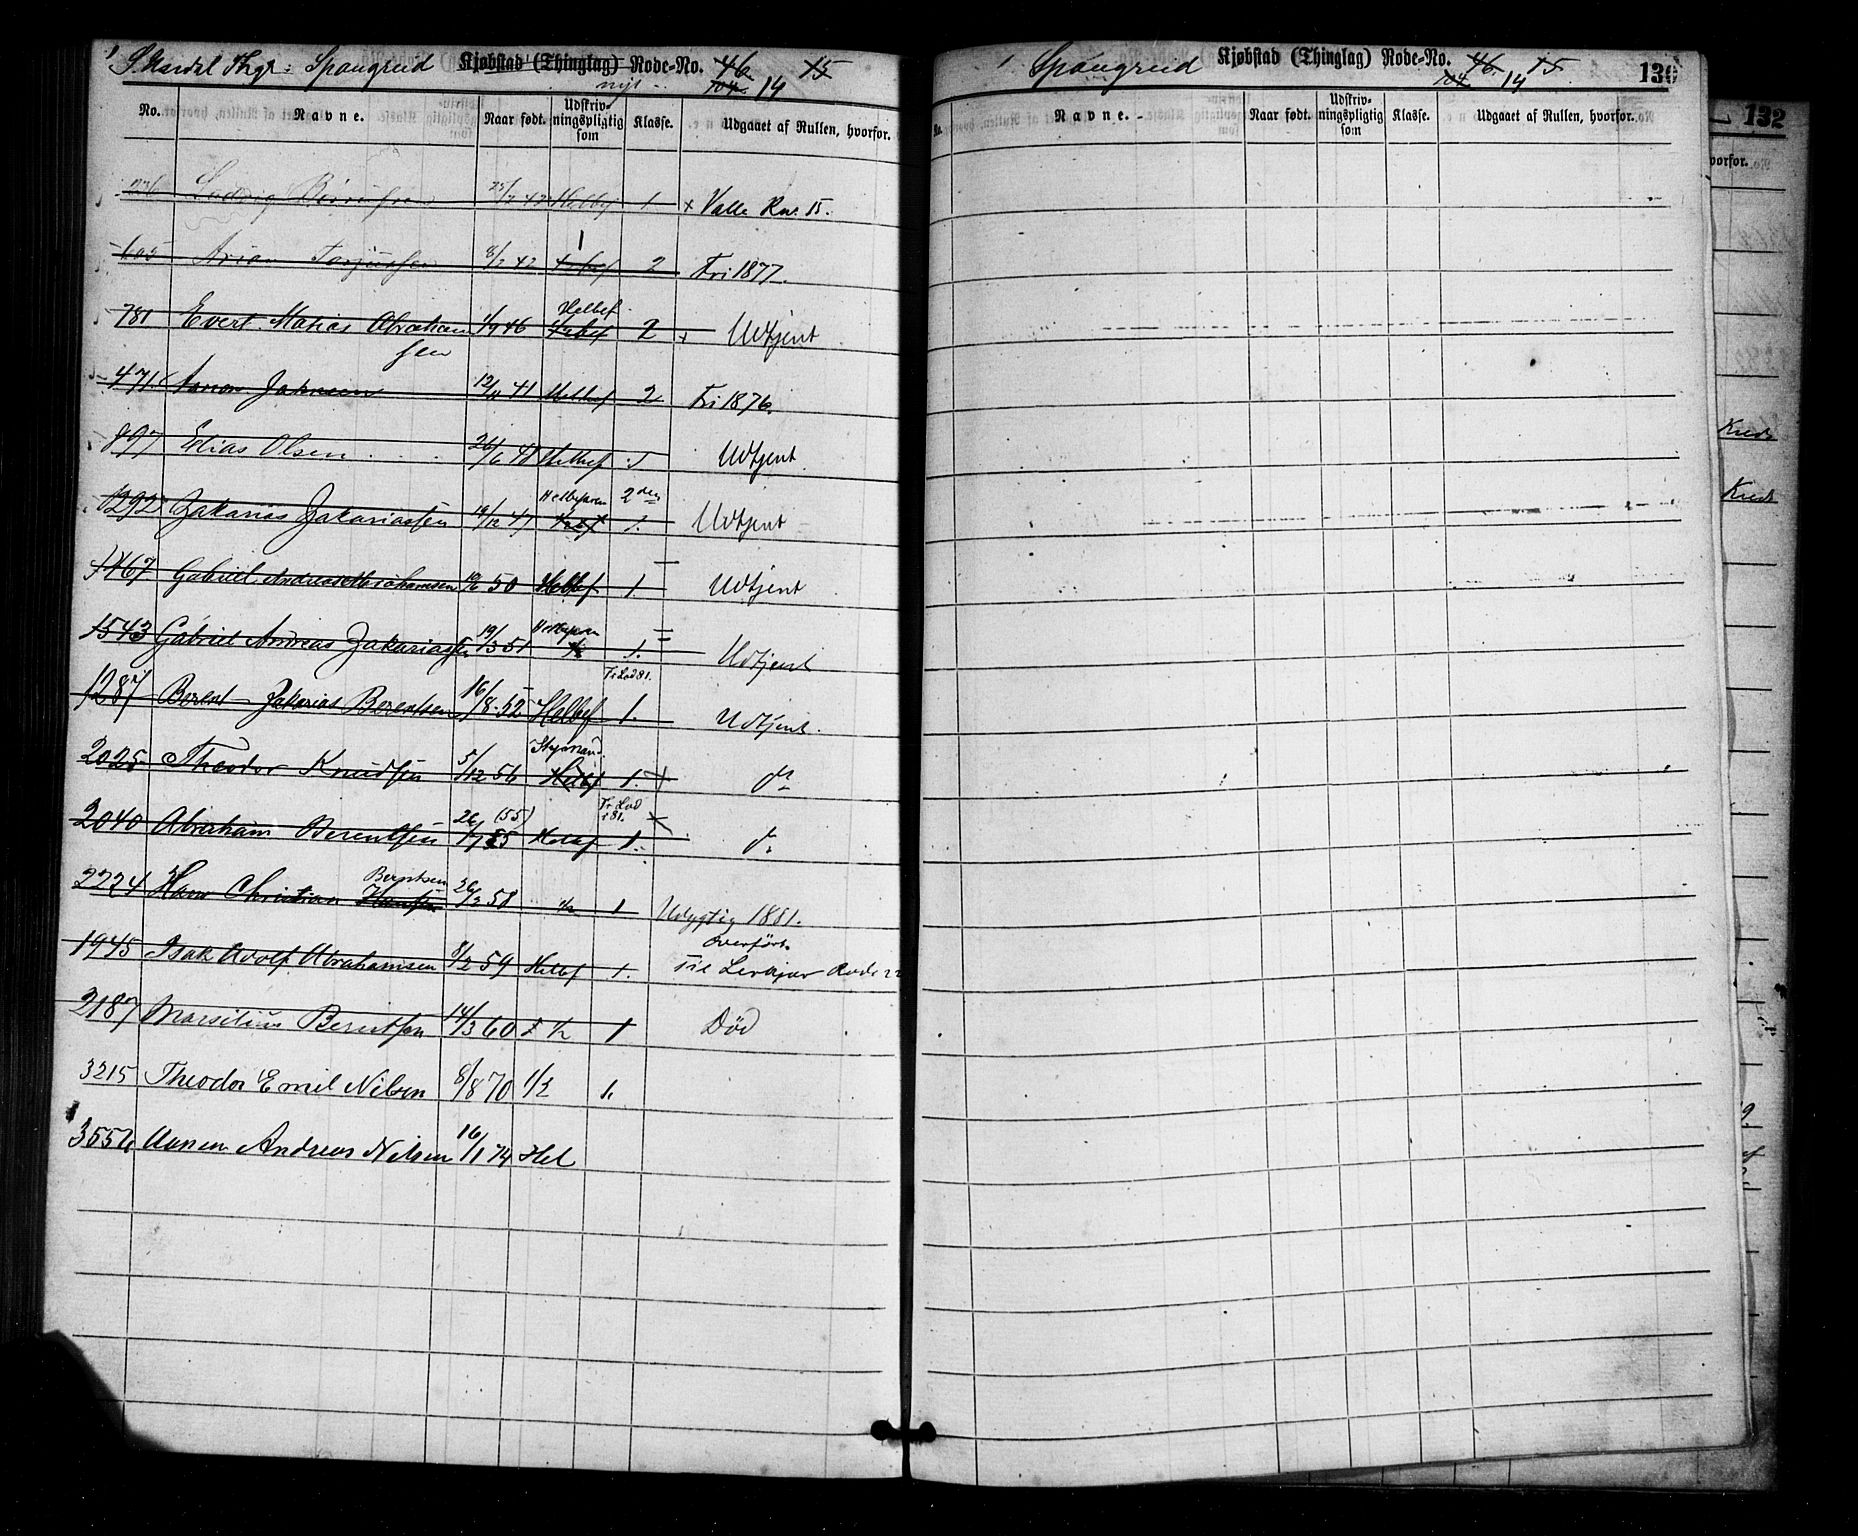 S. Mandal Thgl: Spangrud Kjøbstad (Thinglag) Rode-No. 46. 15
nye 104. 14
No. Navne. Naar født. Udskrivningspligtig som Klasse. Udgaaet af Rullen, hvorfor.
236 Ludvig 25/2 42 Helbef 1. x Valle Rno. 15.
605 Arian Torjussen 8/2 42 1 2 Fri 1877.
781 Evert Matias Abraham 1/9 46 Helbef 2 Udtjent
sen
471. Aanon Jakobsen 12/11 41 Helbef 2 Fri 1876.
897 Elias Olsen 26/6 48 Helbef Udtjent
1292 Zakarias Zakariassen 19/12 47 Helbefaren 2den 1. Udtjent
1467 Gabriel Andreas Abrahamsen 19/6 50 Helbef 1. Udtjent
1543 Gabriel Andreas Zakariassen 19/3 51 Helbefaren 1/2 1. Udtjent
Fr. Lod 81.
1287 Berent Zakarias Berentsen 16/8 52 Helbef 1. Udtjent.
2025 Theodor Knudsen 5/12 56 Styrmand Helbef 1. do
Fr. Lod i 81.
2040 Abraham Berentsen 26/1 55 (55) Helbef 1. do
2224 Hans Christian Hansen Berntsen 26/2 58 1/2 1 Udygtig 1881.
Overført
1945 Isak Adolf Abrahamsen 8/2 59 Helbf 1. Til Rode 22
2187 Marsilius Berentsen 14/3 60 1/2 1 Død
3215 Theodor Emil Nilsen 8/8 70 1/2 1.
3556 Aanen Andreas Nilsen 16/1 74 Hel
Spangrud Kjøbstad (Thinglag) Rode-No. 46. 15
104 14
130
No. Navne. Naar født. Udskrivningspligtig som Klasse. Udgaaet af Rullen, hvorfor.
132
vorfor.
Kreds
Kreds